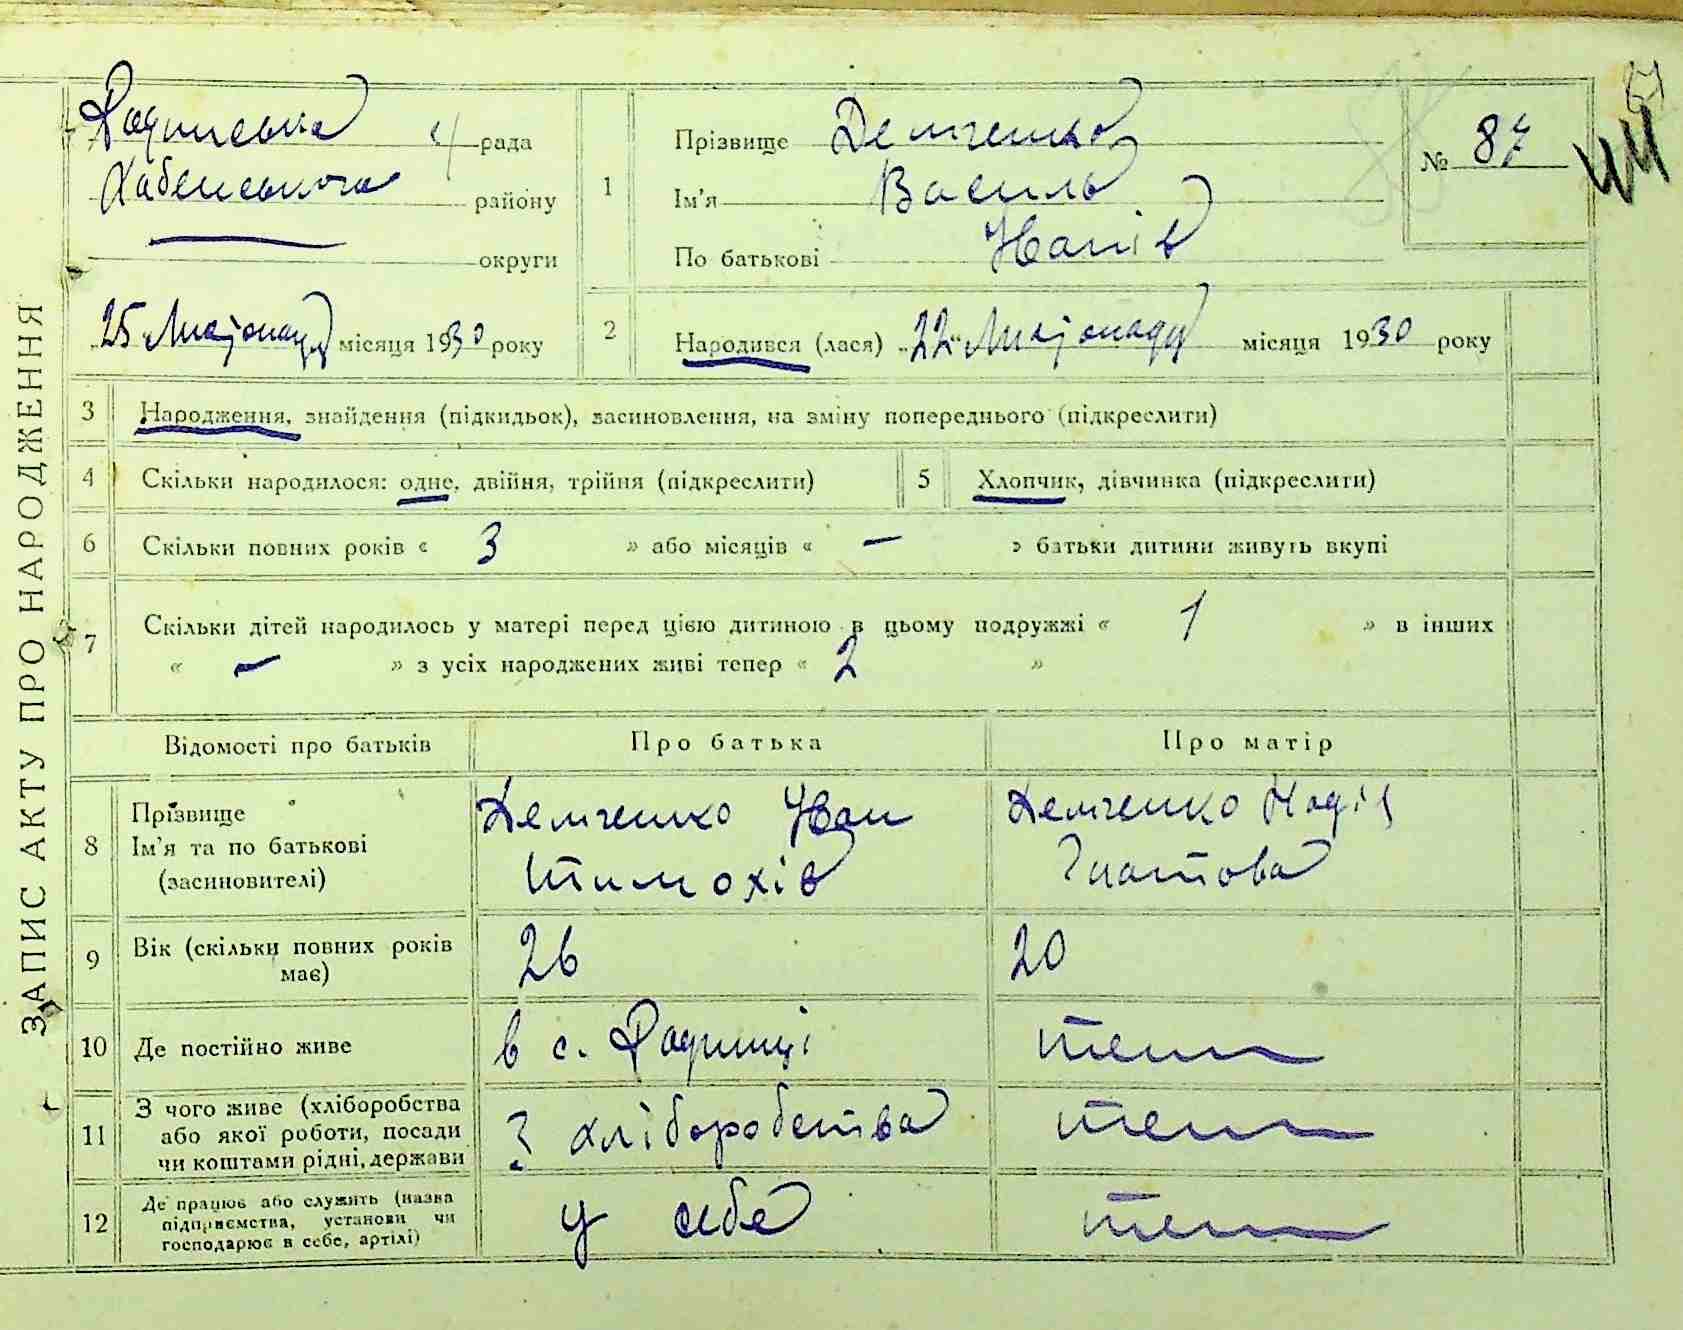 ЗАПИС АКТУ ПРО НАРОДЖЕННЯ
Радинська с/рада
Хабенського району
— округи
„25" Листопаду місяця 1930 року
1
Прізвище Демченко
Ім'я Василь
По батькові Іванів
№ 87
2
Народився (лася) „22" Листопаду місяця 1930 року
3 Народження, знайдення (підкидьок), засиновлення, на зміну попереднього (підкреслити)
4 Скільки народилося: одне, двійня, трійня (підкреслити) 5 Хлопчик, дівчинка (підкреслити)
6 Скільки повних років « 3 » або місяців « — » батьки дитини живуть вкупі
7 Скільки дітей народилось у матері перед цією дитиною в цьому подружжі « 1 » в інших
« — » з усіх народжених живі тепер « 2 »
Відомості про батьків Про батька Про матір
8 Прізвище Ім'я та по батькові (засиновителі)
Демченко Іван Тимохів
Демченко Надія Гнатова
9 Вік (скільки повних років має) 26 20
10 Де постійно живе в с. Радинці теж
11 З чого живе (хліборобства або якої роботи, посади чи коштами рідні, держави
З хліборобства теж
12 Де працює або служить (назва підприємства, установи чи господарює в себе, артілі)
у себе теж